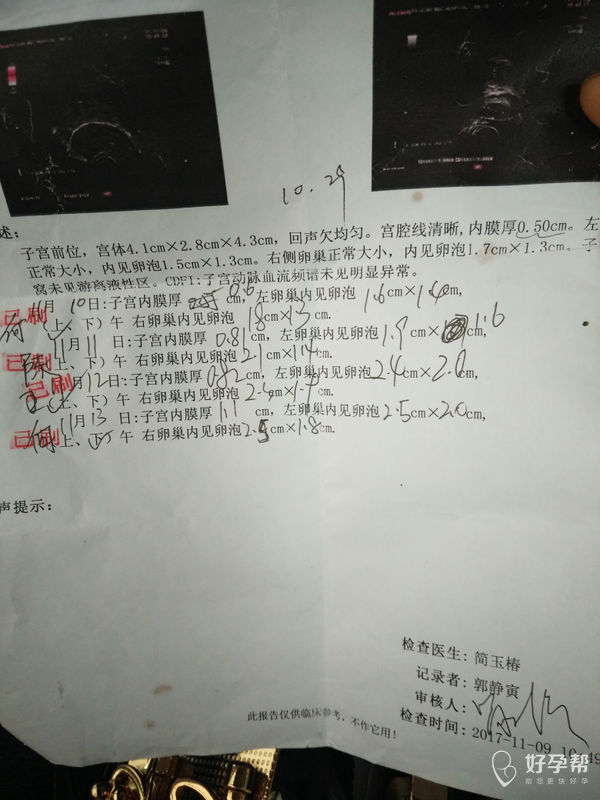 10.29
述:
子宫前位,宫体4.1cm×2.8cm×4.3cm,回声欠均匀。宫腔线清晰,内膜厚0.50cm。左
正常大小,内见卵泡1.5cm×1.3cm。右侧卵巢正常大小,内见卵泡1.7cm×1.3cm。子
窝未见游离液性区。CDFI:子宫动脉血流频谱未见明显异常。
已刷 11月10日:子宫内膜厚 0.6 cm,左卵巢内见卵泡 1.6cm×1.4cm,
(上、下)午 右卵巢内见卵泡 1.8cm×1.3cm.
11月11日:子宫内膜厚 0.81cm,左卵巢内见卵泡 1.9cm×1.6cm,
已刷 上、下)午 右卵巢内见卵泡2.1cm×1.4cm.
已刷 月12日:子宫内膜厚0.82cm,左卵巢内见卵泡2.4cm×2.0cm,
上、下)午 右卵巢内见卵泡2.4cm×1.7cm.
11月13日:子宫内膜厚 1.1 cm,左卵巢内见卵泡2.5cm×2.0cm,
已刷 上、下)午 右卵巢内见卵泡2.5cm×1.8cm.
声提示:
检查医生:简玉椿
记录者:郭静寅
审核人:
此报告仅供临床参考,不作它用!
检查时间:2017-11-09 10:49
好孕帮
助您更快好孕